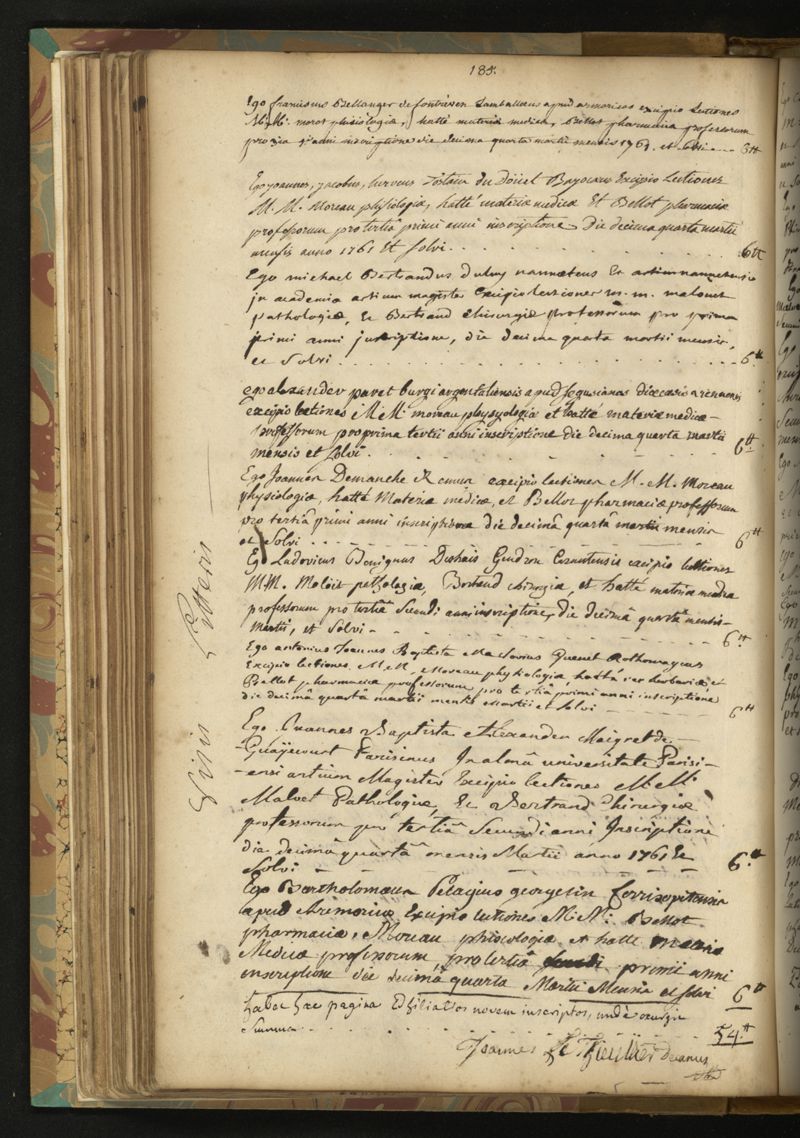 185.
Ego franciscus Bellanger de fontaven Lamballaeus apud armoricos excipio Lectiones
M.M. phisiologiae, hatté materia medica, Bellot pharmacia professorum
pro anni inscriptione die decima quarta martii mensis 1761. et solvi ... 6tt
Ego joannes, jacobus, herveus du Baÿocaeus Excipio Lectiones
M. M. Moreau phisiologiae, hatté materiae medicae Et Bellot pharmaciae
professorum pro tertiâ primi anni inscriptione Die decima quarta martii
mensis anno 1761 Et solvi . . . 6tt
Ego michael Bertrandus nannetaeus Et
in academia artium magister Excipio lectiones m. m. malouet
pathologiae, Et Bertrand chirurgiae professorum pro prima
primi anni inscriptione, die decima quarta martii mensis,
et Solvi . . . 6.tt
ego alexander paret burgi argentaliensis apud segusianos dioecesis viennensis
excipio lectiones M.M. moreau physyologiae et hatté materiae medicae -
professorum pro prima tertii anni inscriptione die decima quarta martii
mensis et solvi . 6tt
Ego Joannes Demanche excipio lectiones M. M. Moreau
physiologiae, hatté Materiae medicae, et Bellot pharmaciae professorum
pro tertiâ primi anni inscriptione die decimâ quartâ martii mensis
et Solvi . . . 6tt
Ego Ludovicus Benignus Gendron excipio lectiones
MM. Maloët pathologiae, Bertrand chirurgiae, et hatté materiae medicae
professorum pro tertiâ secundi anni inscriptione, die decimâ quartâ mensis
Martii, et Solvi - . . . 6tt
Ego antonius Joannes Baptista Quenet Rothomagaeus
Excipio lectiones M.M. Moreau physiologiae, hatté rei herbariae, et
Bellot pharmaciae professorum pro tertiâ primi anni inscriptione
die decimâ quartâ martii mensis et solvi - - 6tt
Ego Joannes Baptista Alexander Maigret de
Parisinus In almâ universitate Parisi-
-ensi artium Magister Excipio lectiones M.M.
Malvet Pathologiae, Et Bertrand Chirurgiae
professorum pro tertiâ Secundi anni Inscriptione
die decimâ quartâ mensis Martii anno 1761 Et
Solvi - - - 6.tt
Ego Bartholomaeus Pelagius georgelin Corrisopitensis
apud Armoricos Excipio lectiones M.M. Bellot
pharmaciae, Moreau phisiologiae et hatté
Medicae professorum pro tertiâ primi anni
inscriptione die decimâ quarta Martii Mensis et solvi 6tt
habet haec pagina novem inscriptos, unde exurgit
Summa . . . 54.tt
Joannes Le Thieullier decanus
Visis Litteris